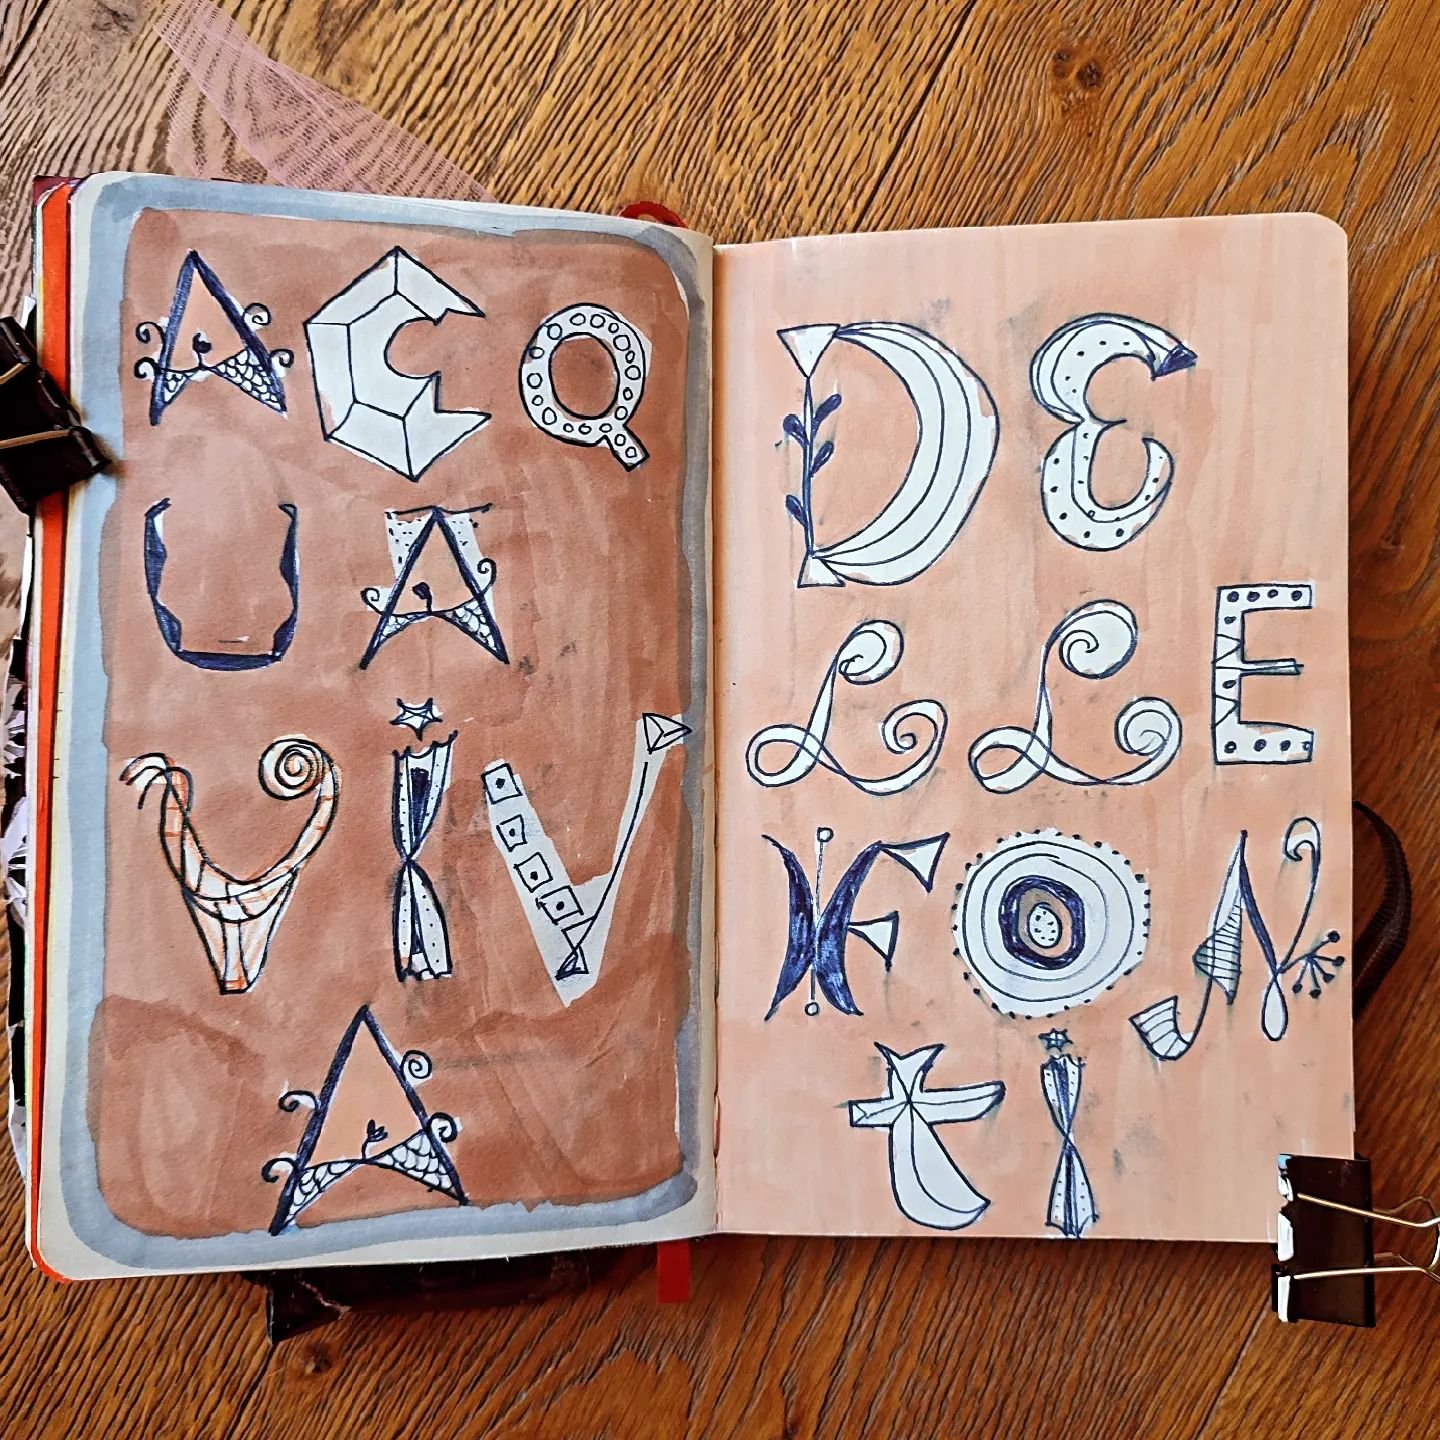 ACQ
UA
VIV
A
DE
LLE
FON
tI